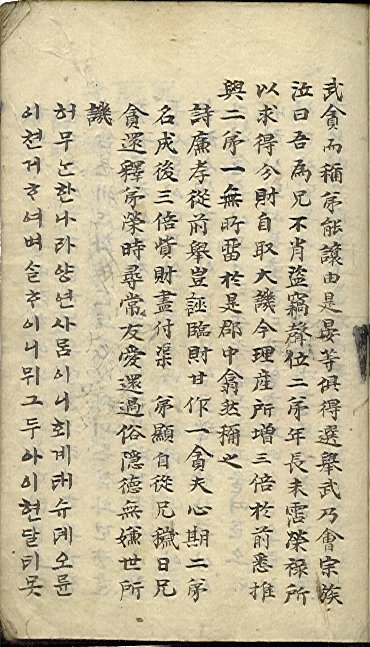 武貪而稱弟能讓由是晏等俱得選擧武乃會宗族
泣曰吾爲兄不肖盜竊聲位二弟年長未霑榮祿所
以求得分財自取大譏今理産所增三倍於前悉推
與二弟一無所留於是郡中翕然稱之
詩廉孝從前擧豈誣臨財甘作一貪夫心期二弟
名成後三倍貲財盡付渠 弟顯自從兄穢日兄
貪還釋弟榮時尋常友愛還過俗隱德無嫌世所
譏
허무ᄂᆞᆫ한나라양년사ᄅᆞᆷ이니회계태슈뎨오륜
이쳔거ᄒᆞ여벼슬ᄒᆞ이니뮈그두아이현달티못